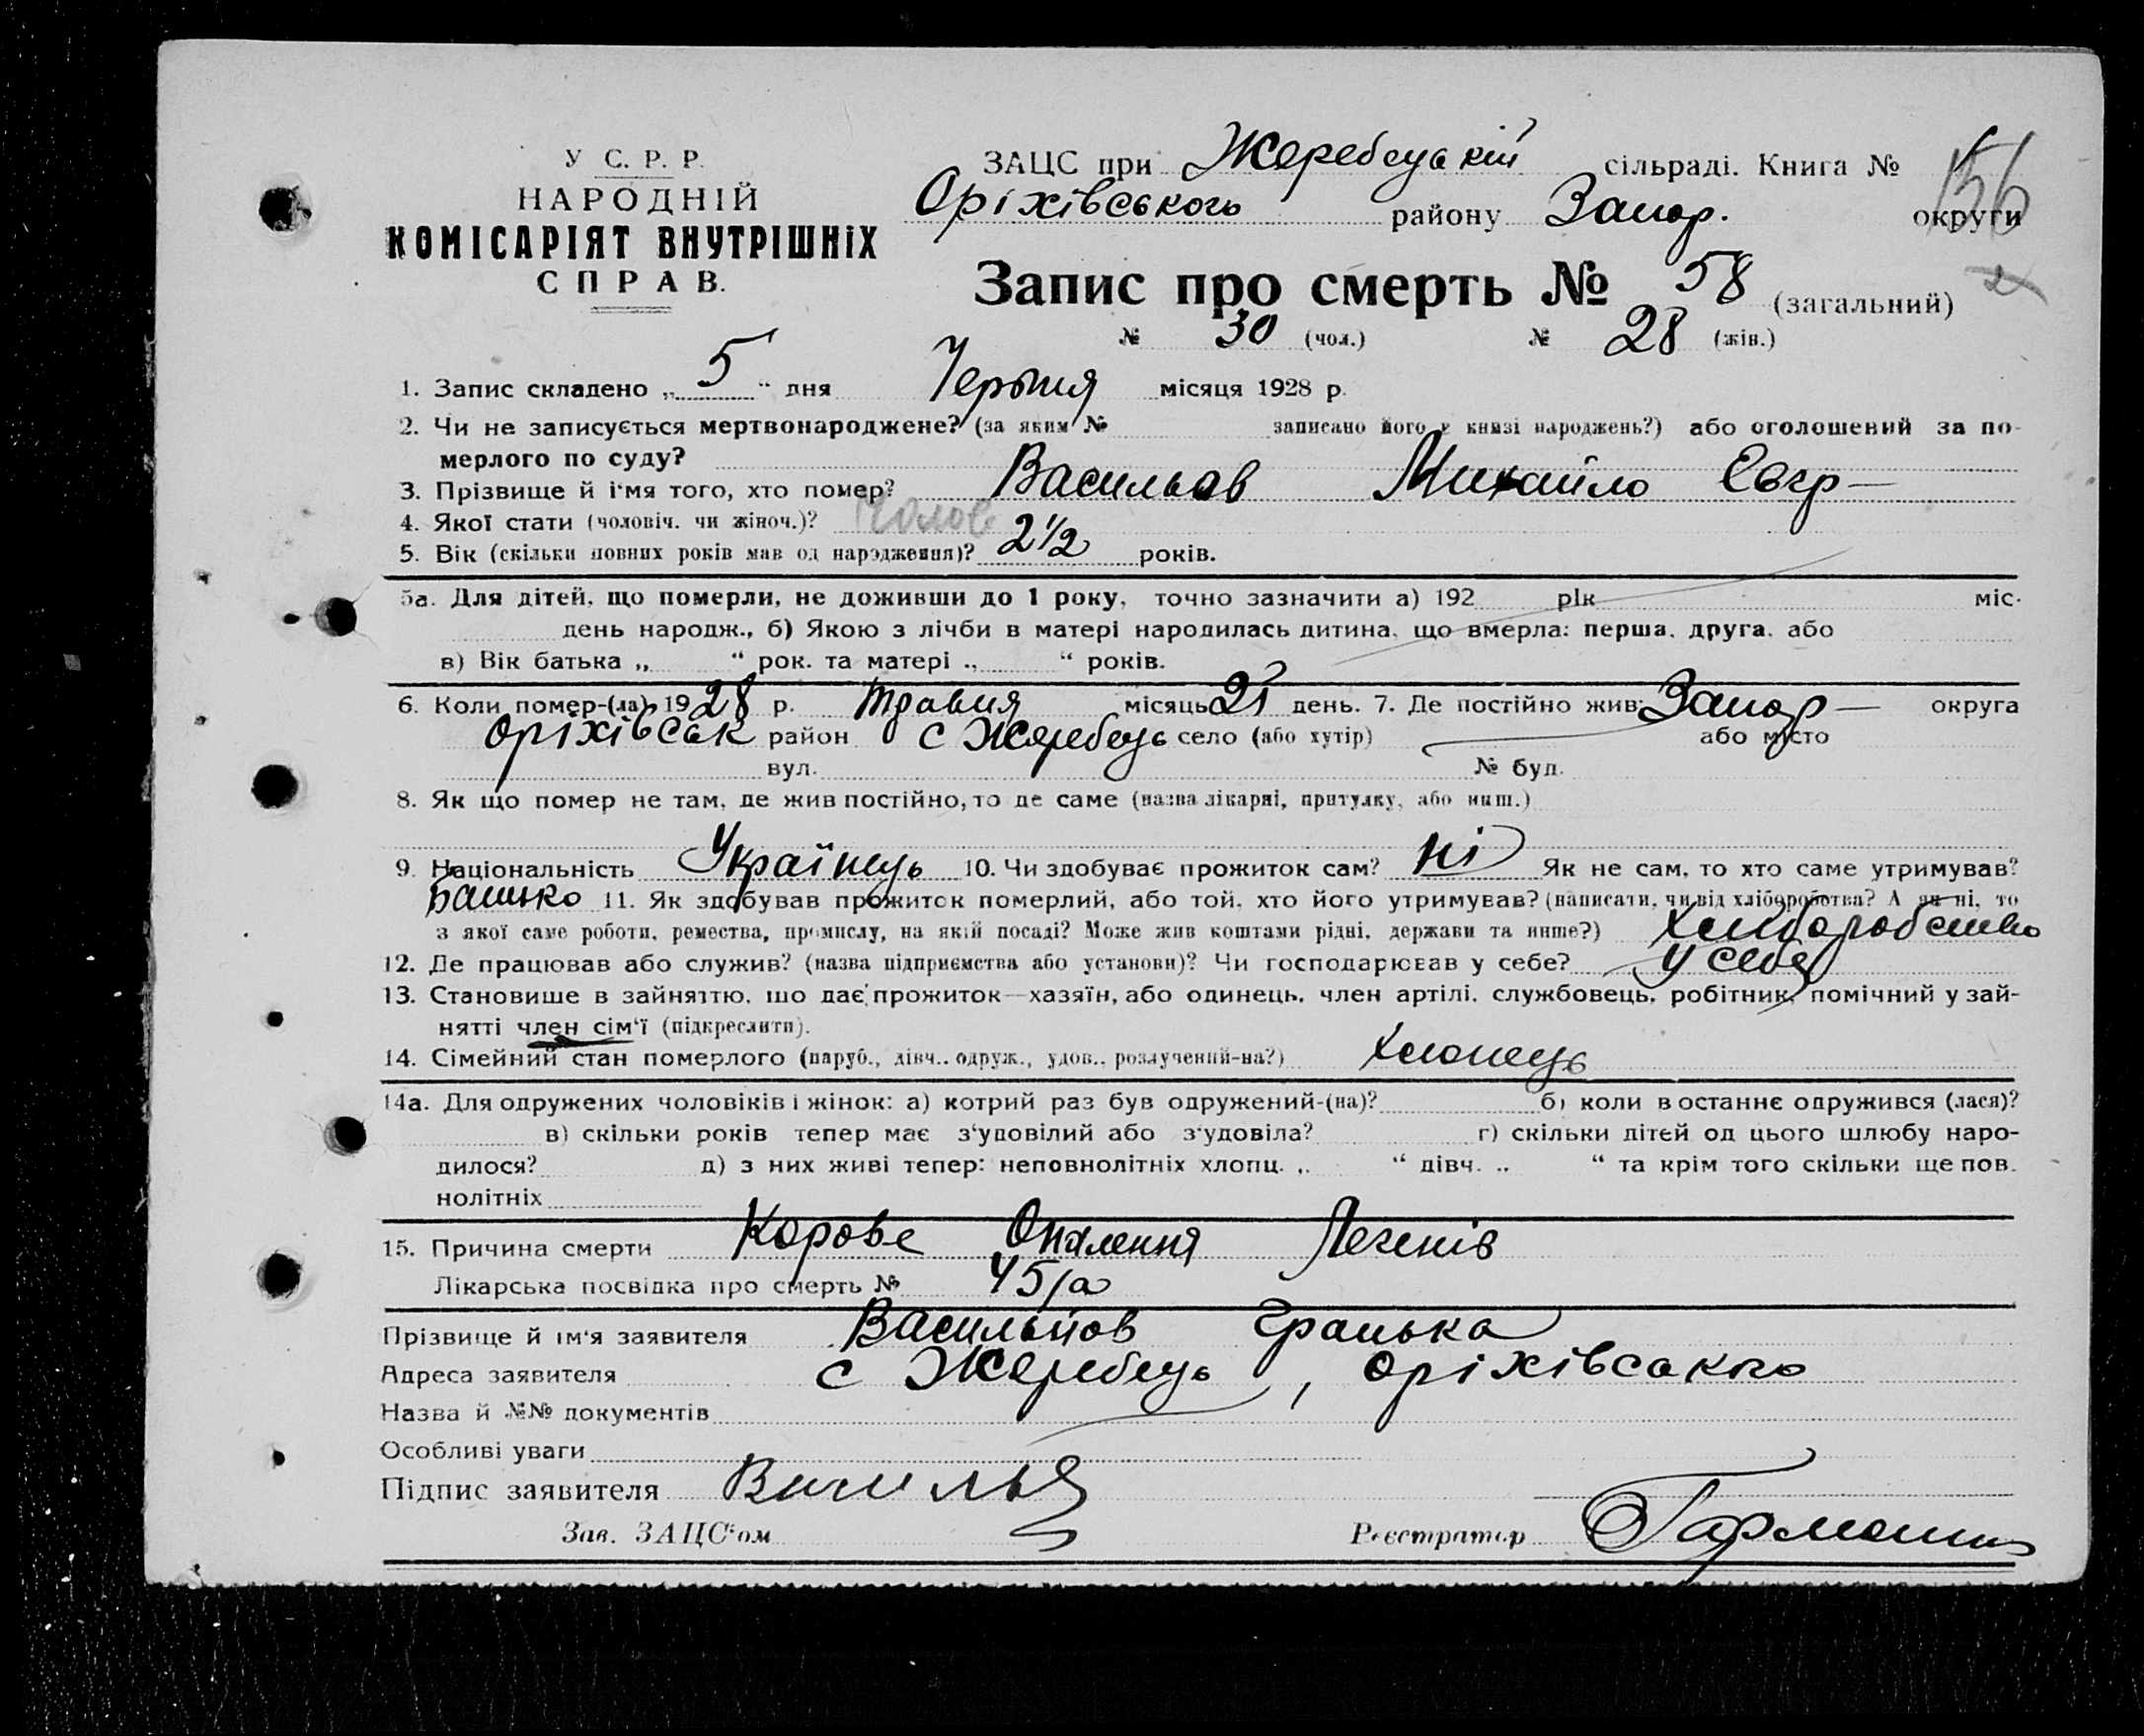 У С. Р. Р.
НАРОДНІЙ
КОМІСАРІЯТ ВНУТРІШНІХ
СПРАВ.
ЗАЦС при Жеребецькій сільраді. Книга №
156
Оріхівського району Запор. округи
Запис про смерть № 58 (загальний)
№ 30 (чол.) № 28 (жін.)
1. Запис складено „ 5 “ дня Червня місяця 1928 р.
2. Чи не записується мертвонароджене? (за яким № записано його у книзі народжень?) або оголошений за по-
мерлого по суду?
3. Прізвище й і'мя того, хто помер? Васильов Михайло Євгр—
4. Якої стати (чоловіч. чи жіноч.)? Чолов
5. Вік (скільки повних років мав од народження)? 2½ років.
5а. Для дітей, що померли, не доживши до 1 року, точно зазначити а) 192 рік міс.
день народж., б) Якою з лічби в матері народилась дитина, що вмерла: перша, друга, або
в) Вік батька „ “ рок. та матері „ “ років.
6. Коли помер-(ла) 1928 р. травня місяць 21 день. 7. Де постійно жив: Запор— округа
Оріхівськ район с Жеребець село (або хутір) або місто
вул. № буд.
8. Як що помер не там, де жив постійно, то де саме (назва лікарні, притулку, або инш.)
9. Національність Українець 10. Чи здобуває прожиток сам? Ні Як не сам, то хто саме утримував?
Батько 11. Як здобував прожиток померлий, або той, хто його утримував? (написати, чи від хліборобства? А як ні, то
з якої саме роботи, ремества, промислу, на якій посаді? Може жив коштами рідні, держави та инше?) Хліборобство
12. Де працював або служив? (назва підприємства або установи)? Чи господарював у себе? У себе
13. Становище в зайняттю, що дає прожиток—хазяїн, або одинець, член артілі, службовець, робітник, помічний у зай-
нятті член сім'ї (підкреслити).
14. Сімейний стан померлого (паруб., дівч., одруж., удов., розлучений-на?) хлопець
14а. Для одружених чоловіків і жінок: а) котрий раз був одружений-(на)? б) коли в останнє одружився (лася)?
в) скільки років тепер має з'удовілий або з'удовіла? г) скільки дітей од цього шлюбу наро-
дилося? д) з них живі тепер: неповнолітніх хлопц. „ “ дівч. „ “ та крім того скільки ще пов.
нолітніх
15. Причина смерти Корове Опалення Легенів
Лікарська посвідка про смерть № 45/а
Прізвище й ім'я заявителя Васильйов
Адреса заявителя с Жеребець, Оріхівського
Назва й №№ документів
Особливі уваги
Підпис заявителя
Зав. ЗАЦС'ом Реєстратор